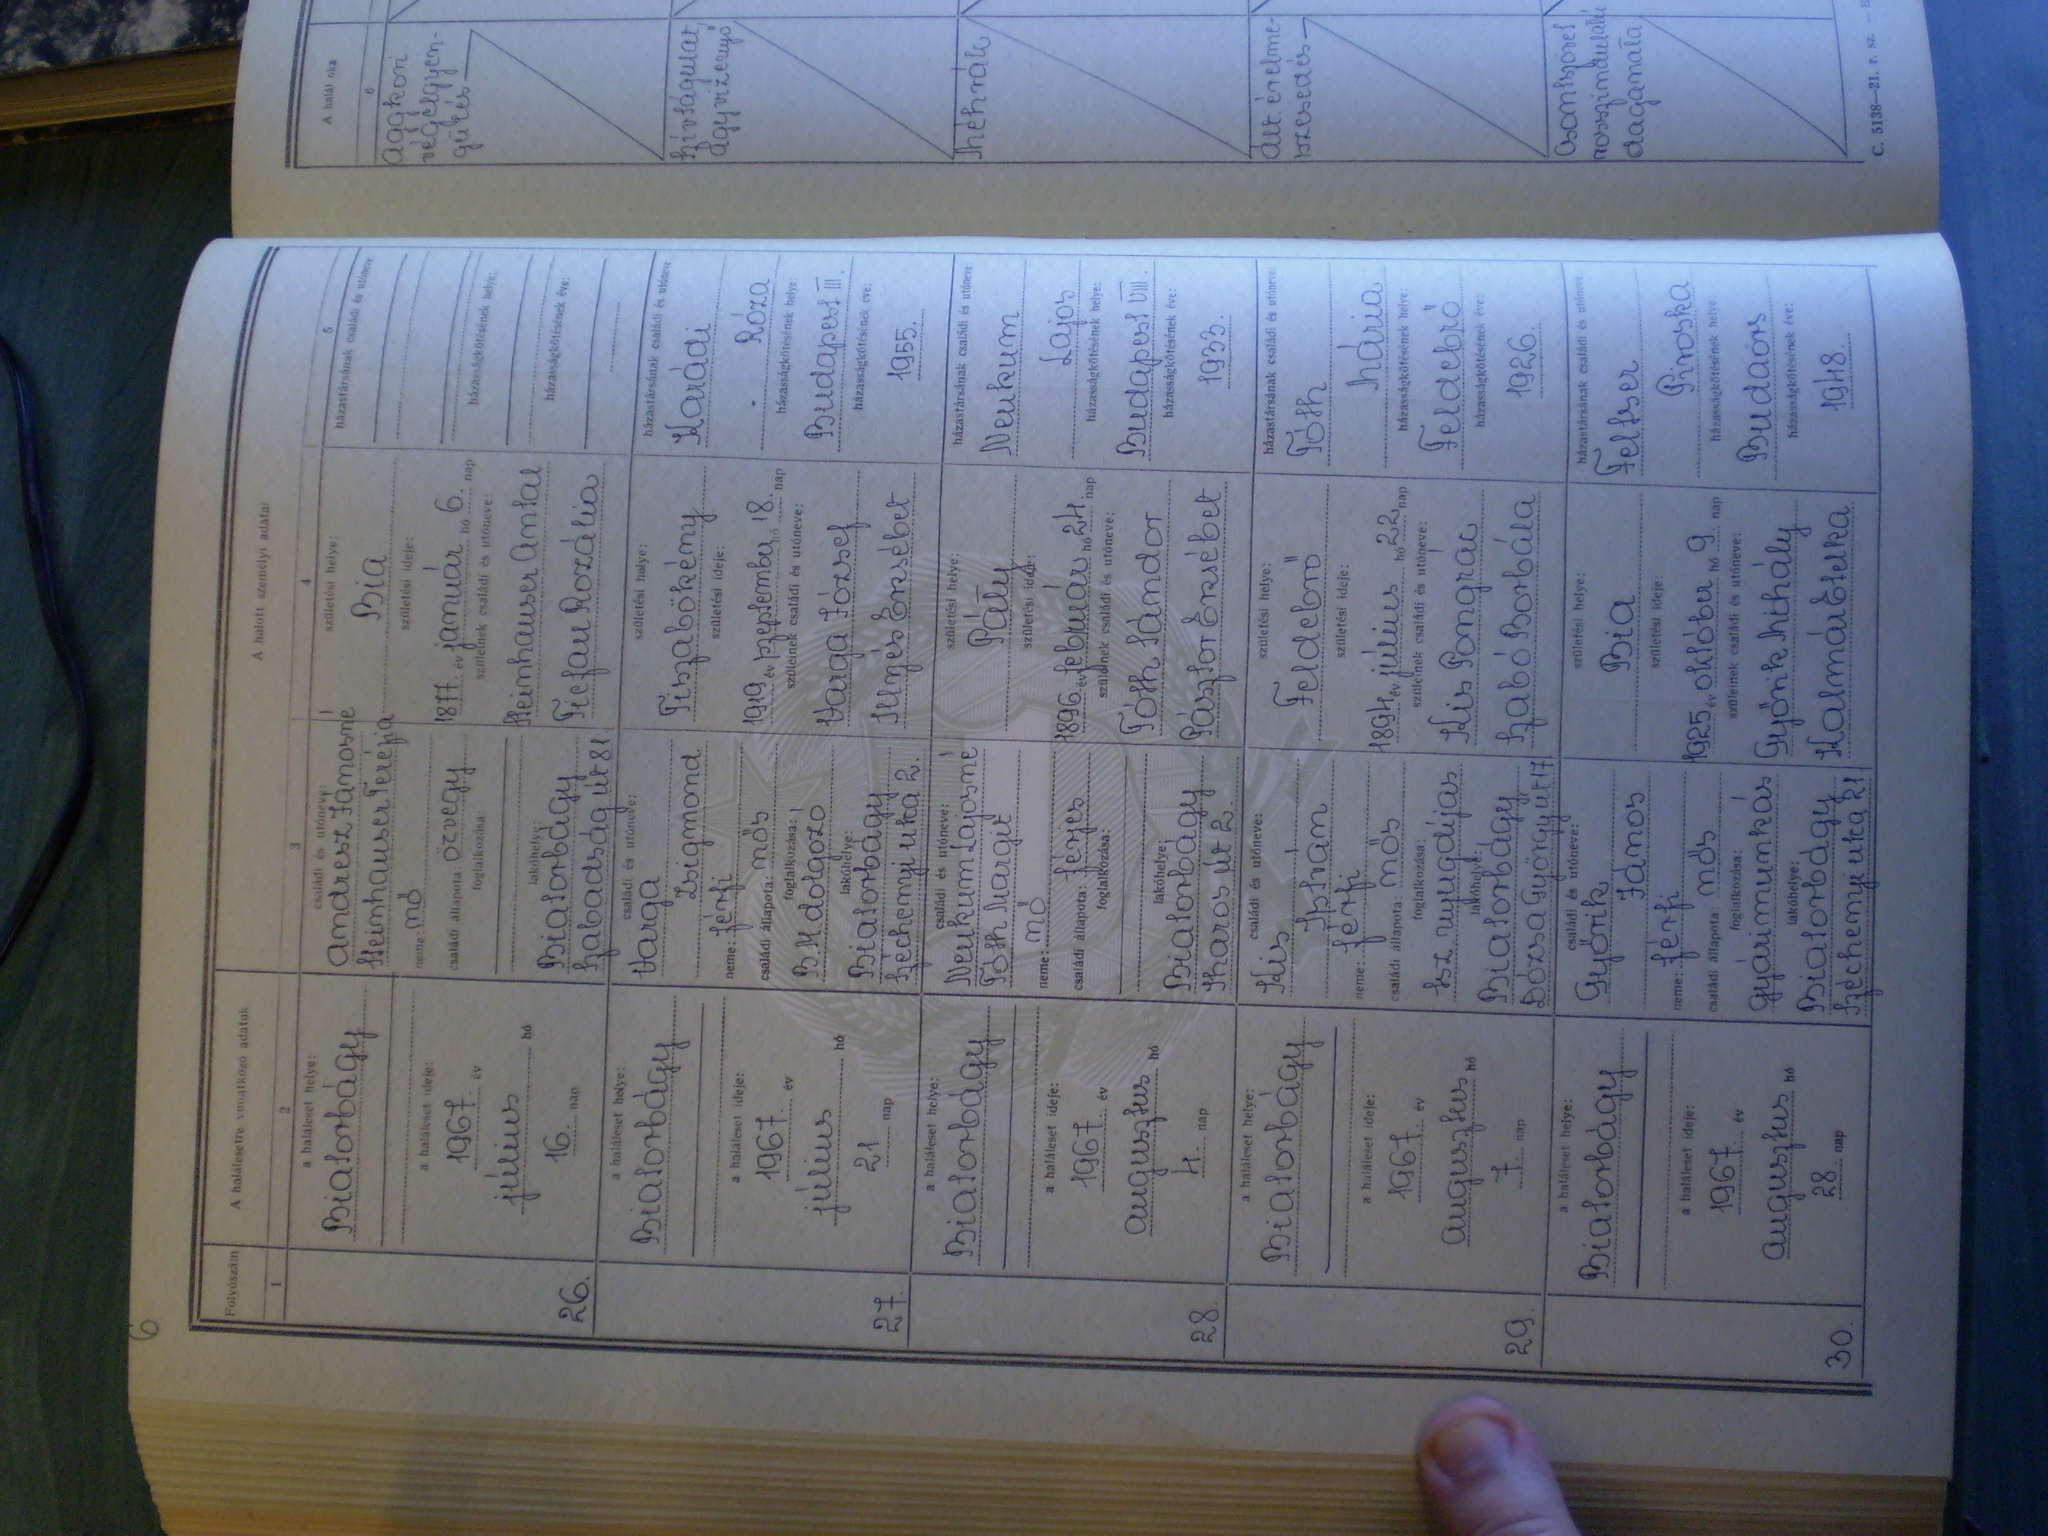 6
Folyószám
A halálesetre vonatkozó adatok
A halott személyi adatai
A halál oka
1
2
3
4
5
6
26.
a haláleset helye:
Biatorbágy
a haláleset ideje:
1967. év
július hó
16. nap
családi és utóneve:
Andresz Jánosné
Heinhauser Terézia
neme: nő
családi állapota: özvegy
foglalkozása:
lakóhelye:
Biatorbágy
Szabadság út 81
születési helye:
Bia
születési ideje:
1877. év január hó 6. nap
szüleinek családi és utóneve:
Heinhauser Antal
Tiefau Rozália
házastársának családi és utóneve:
házasságkötésének helye:
házasságkötésének éve:
Aggkori
végelgyen-
gülés
27.
a haláleset helye:
Biatorbágy
a haláleset ideje:
1967. év
július hó
21 nap
családi és utóneve:
Varga
Zsigmond
neme: férfi
családi állapota: nős
foglalkozása:
B.M. dolgozó
lakóhelye:
Biatorbágy
Széchenyi utca 2.
születési helye:
Tiszabökény
születési ideje:
1919 év szeptember hó 18. nap
szüleinek családi és utóneve:
Varga József
Illyés Erzsébet
házastársának családi és utóneve:
Karádi
Róza
házasságkötésének helye:
Budapest III.
házasságkötésének éve:
1955.
Szívságulat,
Agyvizenyő
28.
a haláleset helye:
Biatorbágy
a haláleset ideje:
1967. év
augusztus hó
4. nap
családi és utóneve:
Neukum Lajosné
Tóth Margit
neme: nő
családi állapota: férjes
foglalkozása:
lakóhelye:
Biatorbágy
Maros út 2.
születési helye:
Páty
születési ideje:
1896. év február hó 24. nap
szüleinek családi és utóneve:
Tóth Sándor
Pásztor Erzsébet
házastársának családi és utóneve:
Neukum
Lajos
házasságkötésének helye:
Budapest VIII.
házasságkötésének éve:
1933.
Méhrák
29.
a haláleset helye:
Biatorbágy
a haláleset ideje:
1967. év
augusztus hó
7 nap
családi és utóneve:
Kis
István
neme: férfi
családi állapota: nős
foglalkozása:
tsz. nyugdíjas
lakóhelye:
Biatorbágy
Dózsa György út 17
születési helye:
Feldebrő
születési ideje:
1894 év június hó 22 nap
szüleinek családi és utóneve:
Kis Pongrác
Szabó Borbála
házastársának családi és utóneve:
Tóth
Mária
házasságkötésének helye:
Feldebrő
házasságkötésének éve:
1926.
Ált. érelme-
szesedés
30.
a haláleset helye:
Biatorbágy
a haláleset ideje:
1967 év
augusztus hó
28. nap
családi és utóneve:
Györik
János
neme: férfi
családi állapota: nős
foglalkozása:
Gyárimunkás
lakóhelye:
Biatorbágy
Széchenyi utca 21
születési helye:
Bia
születési ideje:
1925 év október hó 9. nap
szüleinek családi és utóneve:
Györik Mihály
Kalmár Etelka
házastársának családi és utóneve:
Felfser
Piroska
házasságkötésének helye:
Budaörs
házasságkötésének éve:
1948.
Csontszövet
rosszindulatú
daganata
C. 5138—21. r. sz.